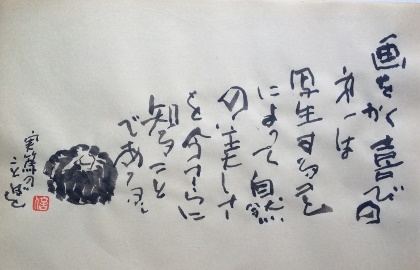 画をかく喜びの
第一は
写生すること
によって自然
の美しさ
を今さらに
知ること
である。
実篤の
ことば